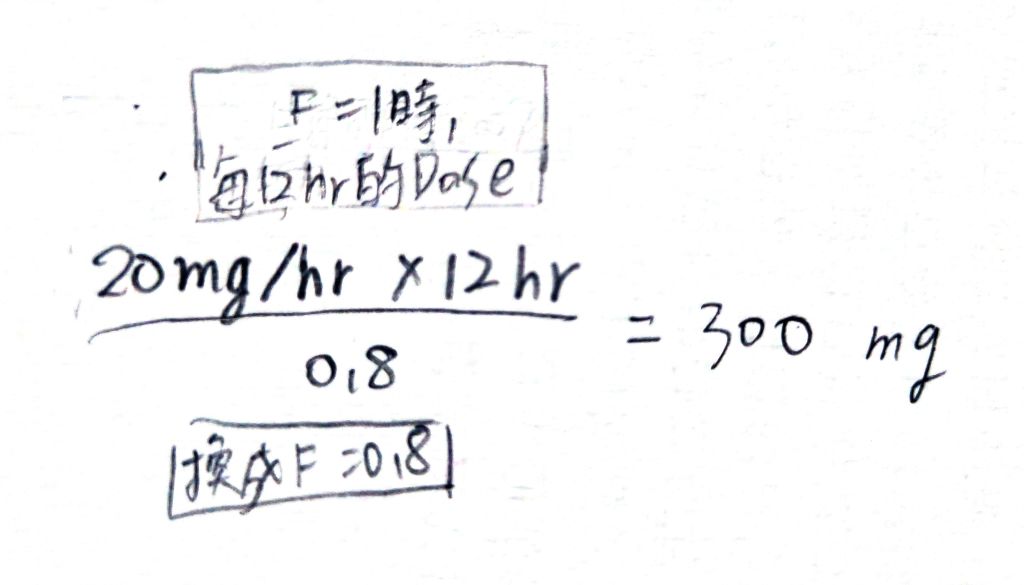 F=1時,
每12hr的Dose
20mg/hr ×12hr
= 300 mg
0.8
換成F=0.8